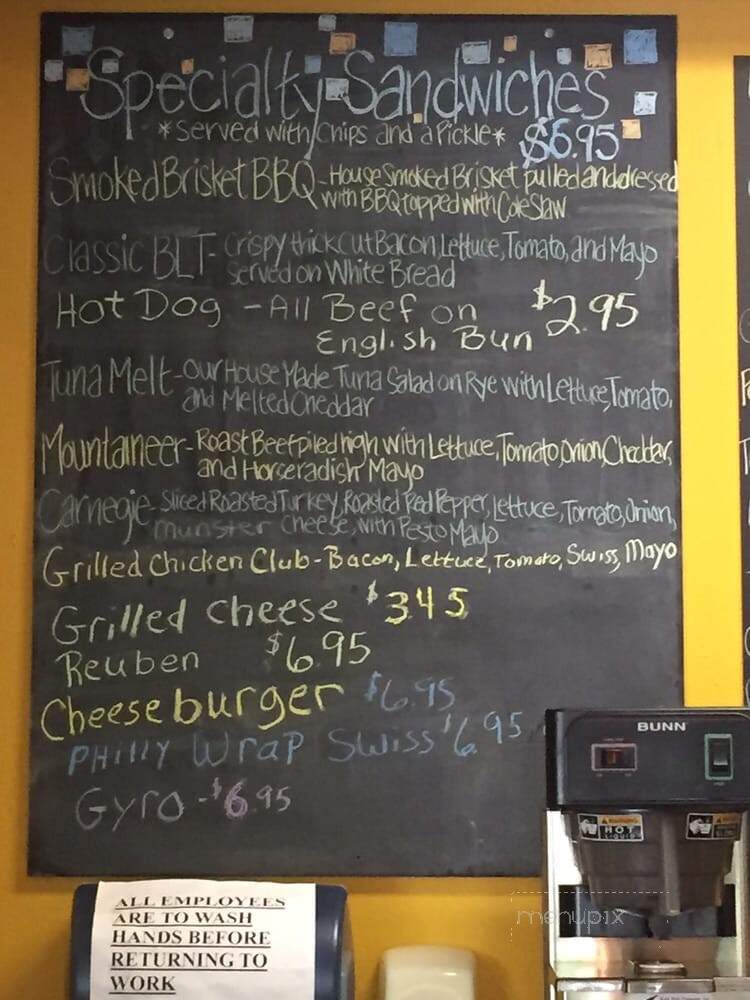 Specialty Sandwiches
*Served with Chips and a Pickle* $6.95
Smoked Brisket BBQ - House Smoked Brisket pulled and dressed
with BBQ topped with Cole Slaw
Classic BLT - Crispy thick cut Bacon, Lettuce, Tomato, and Mayo
Served on White Bread
Hot Dog - All Beef on $2.95
English Bun
Tuna Melt - Our House Made Tuna Salad on Rye with Lettuce, Tomato,
and Melted Cheddar
Mountaineer - Roast Beef piled high with Lettuce, Tomato, Onion, Cheddar,
and Horseradish Mayo
Carnegie - Sliced Roasted Turkey, Roasted Red Pepper, Lettuce, Tomato, Onion,
munster cheese, with Pesto Mayo
Grilled Chicken Club - Bacon, Lettuce, Tomato, Swiss, Mayo
Grilled cheese $3.45
Reuben $6.95
Cheeseburger $6.95
PHilly Wrap Swiss $6.95
Gyro - $6.95
BUNN
HOT
menupix
ALL EMPLOYEES
ARE TO WASH
HANDS BEFORE
RETURNING TO
WORK